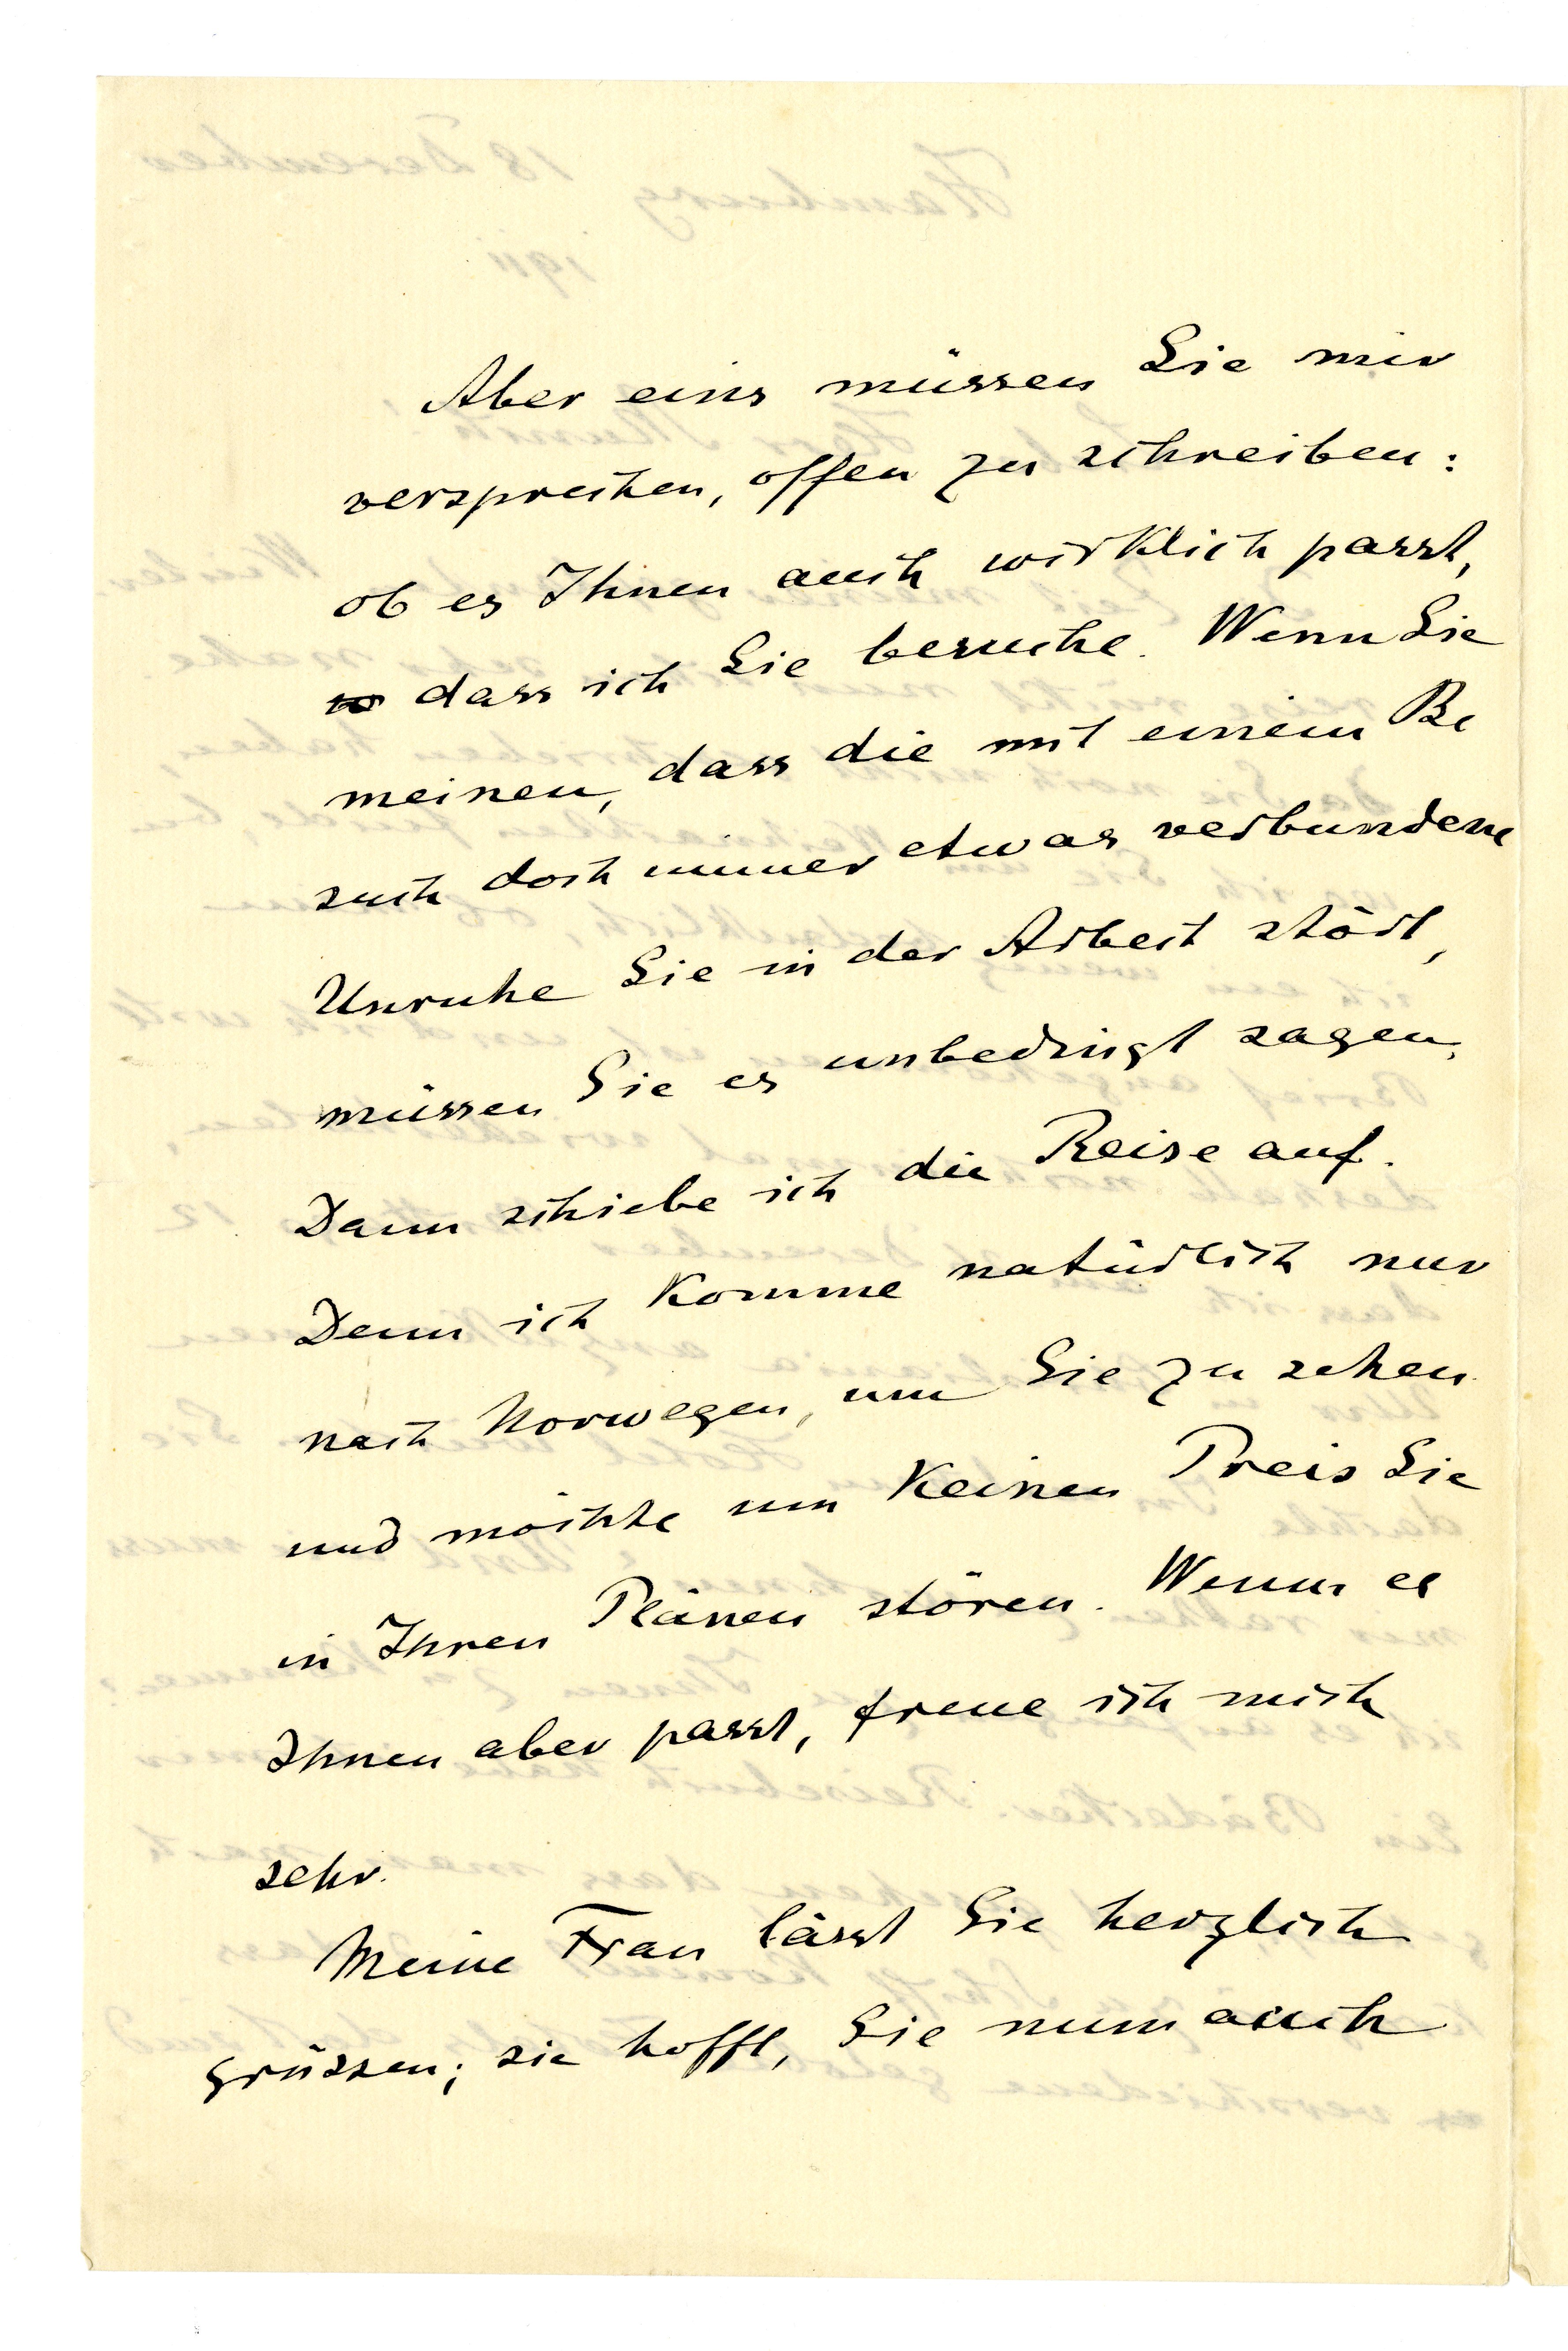 Aber eins müssen Sie mir
versprechen, offen zu schreiben:
ob es Ihnen auch wirklich passt,
dass ich Sie besuche. Wenn Sie
meinen, dass die mit einem Be
such doch immer etwas verbundene
Unruhe Sie in der Arbeit stört,
müssen Sie es unbedingt sagen.
Dann schiebe ich die Reise auf.
Denn ich komme natürlich nur
nach Norwegen, um Sie zu sehen
und möchte um keinen Preis Sie
in Ihren Plänen stören. Wenn es
Ihnen aber passt, freue ich mich
sehr.
Meine Frau lässt Sie herzlich
grüssen; sie hofft, Sie nun auch